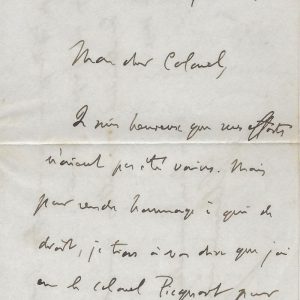 Mon cher Colonel,
Je suis heureux que mes efforts
n'aient pas été vains. Mais
pour rendre hommage à qui de
droit, je tiens à vous dire que j'ai
eu le colonel Picquart pour